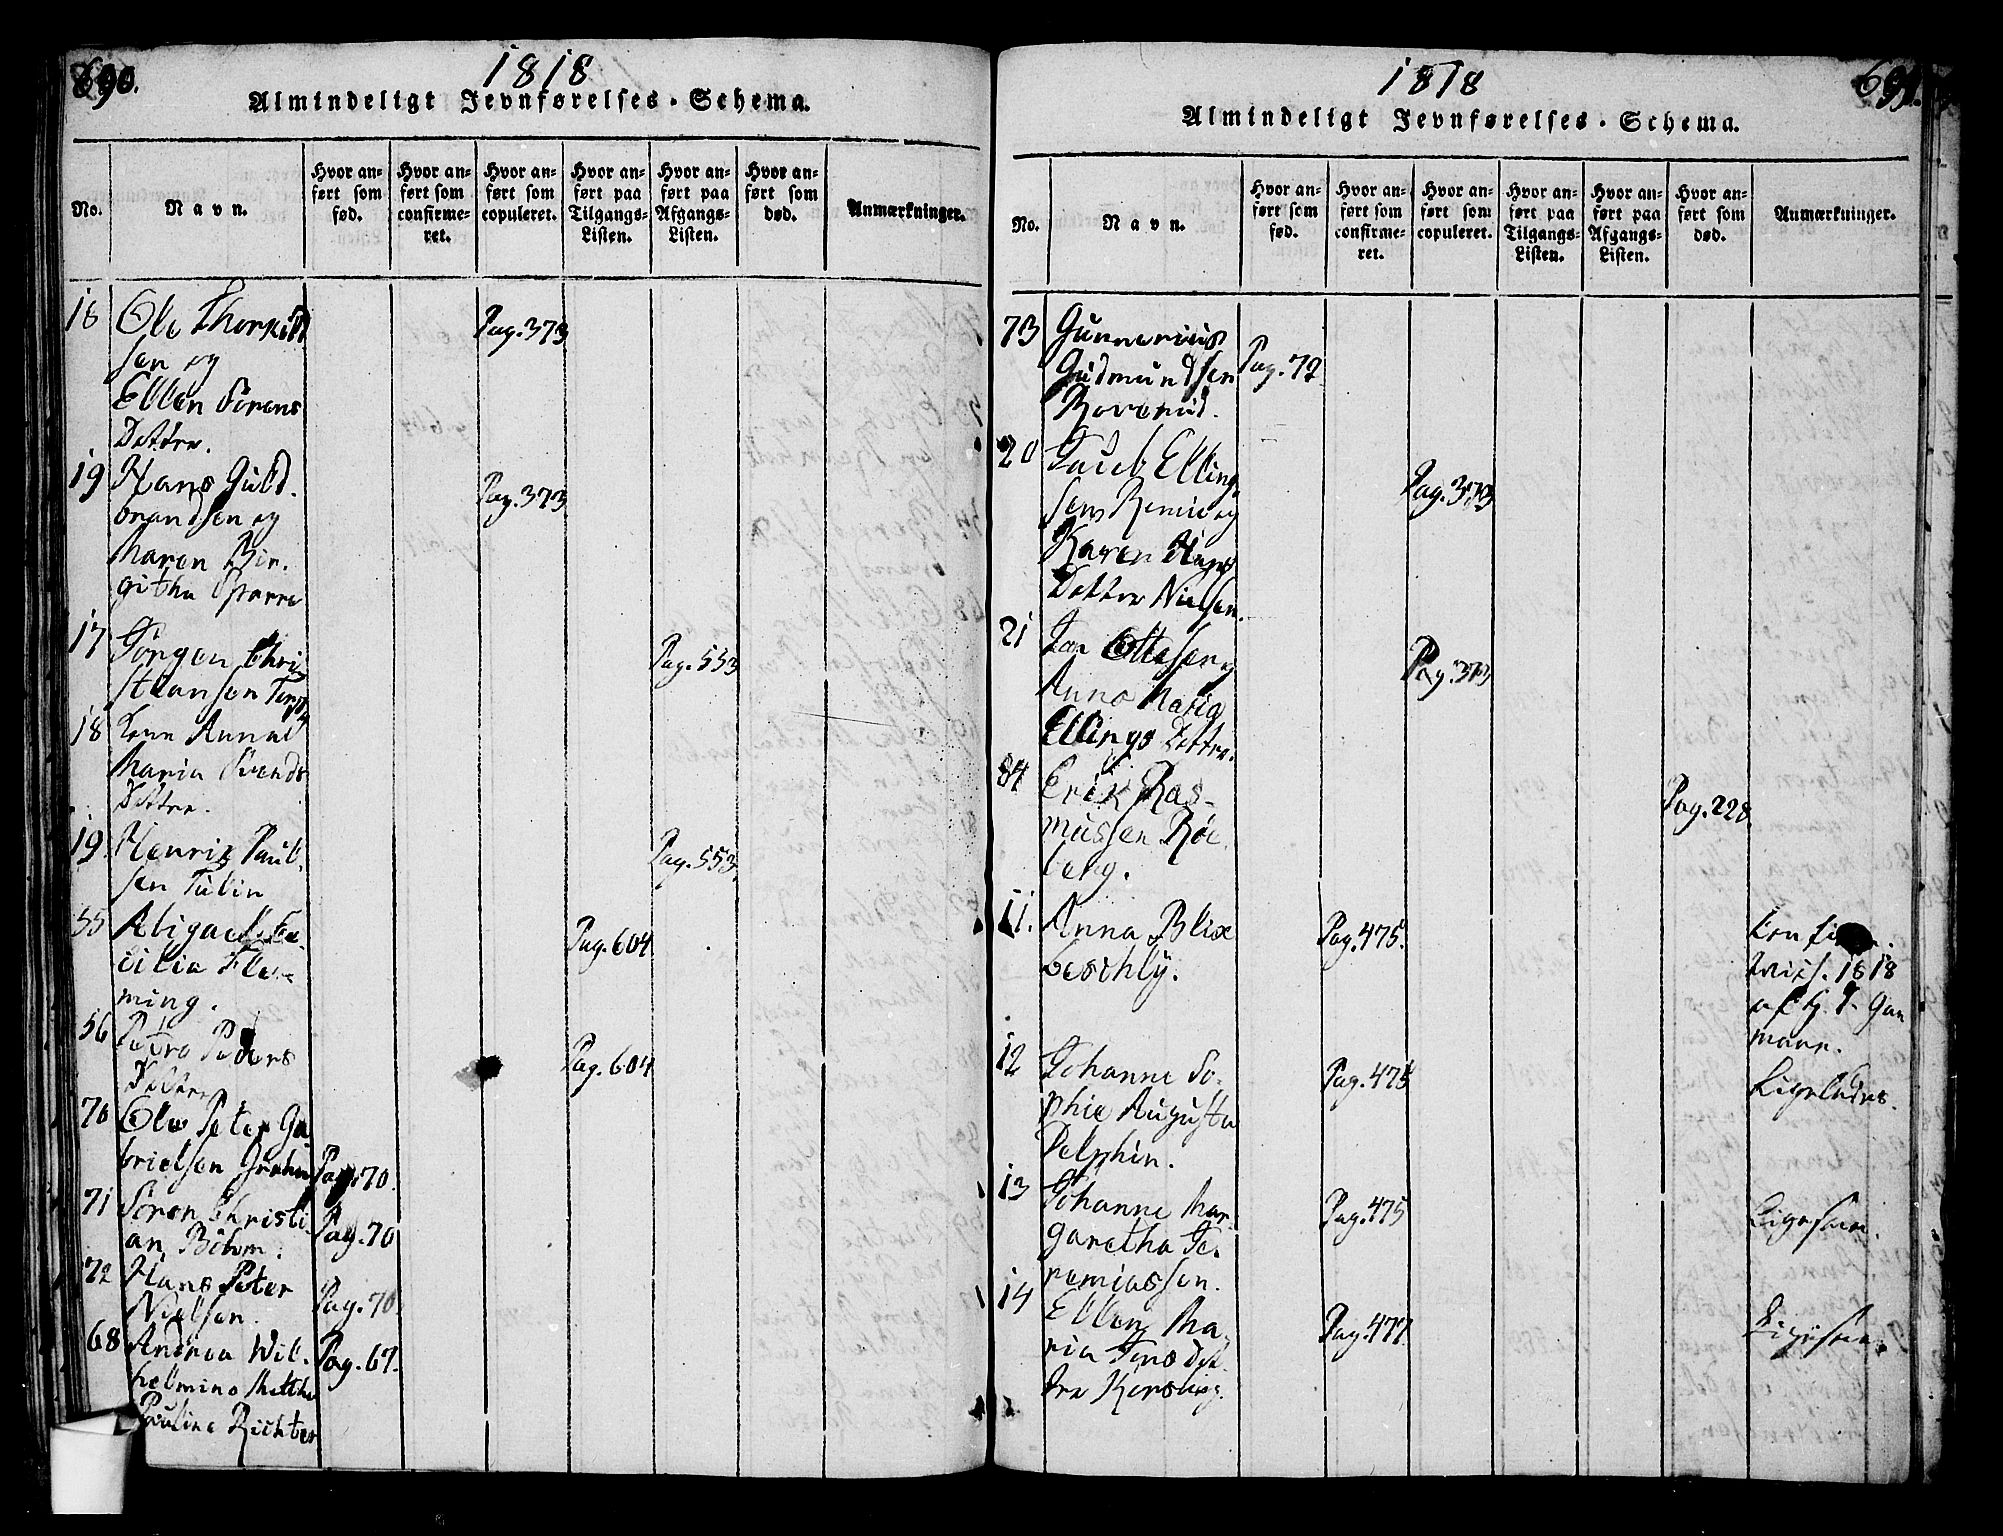 690.
1818
Almindeligt Jevnførelses-Schema.
No.
Navn.
Hvor an-
ført som
fød.
Hvor an-
ført som
confirme-
ret.
Hvor an-
ført som
copuleret.
Hvor an-
ført paa
Tilgangs-
Listen.
Hvor an-
ført paa
Afgangs-
Listen.
Hvor an-
ført som
død.
Anmærkninger.
18 Ole Thorkild
sen og Pag. 373
Ellen Sørens
Datter.
19 Hans Guld-
brandsen og Pag. 373
Maren Bir-
githa Sparre
17 Jörgen Chri
stiansen Pag. 553
18 Anna
Maria Svends
Datter.
19. Henrik Paul-
sen Tulin Pag. 553.
55 Abigael Ce-
cilia Flem-
ming. Pag. 604
56 Petra Peders
Datter Pag. 604
70 Ole Peter Ga
brielsen Grahm Pag. 70.
71 Sören Christi-
an Böhm. Pag. 70
72 Hans Peter
Nielsen. Pag. 70.
68 Andrea Wil-
helmine Mathea Pag. 67.
Pauline Richter
691.
1818
Almindeligt Jevnførelses-Schema.
No.
Navn.
Hvor an-
ført som
fød.
Hvor an-
ført som
confirme-
ret.
Hvor an-
ført som
copuleret.
Hvor an-
ført paa
Tilgangs-
Listen.
Hvor an-
ført paa
Afgangs-
Listen.
Hvor an-
ført som
død.
Anmærkninger.
73 Gunnerius
Gudmundsen Pag. 72
20 Jacob Elling-
sen og Pag. 373
Karen Hans
Datter Nielsen.
21 Jan Ottesen og
Anne Maria Pag. 373
Ellings Datter.
84 Erik Ras-
mussen Röe- Pag. 228
berg.
11. Anna Blix Pag. 475.
1818
12 Johanne So-
phie Augusta Pag. 475
Delphin. Ligeledes.
13 Johanne Mar-
garetha Je- Pag. 475
remiassen. Ligesaa.
14 Ellen Ma-
ria Jens Dat- Pag. 477
ter Ligesaa.